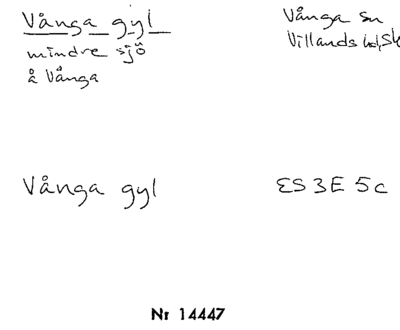 Vånga gyl
mindre sjö
å Vånga
Vånga sn
Villands hd, Sk
Vånga gyl
ES 3E 5c
Nr 14447